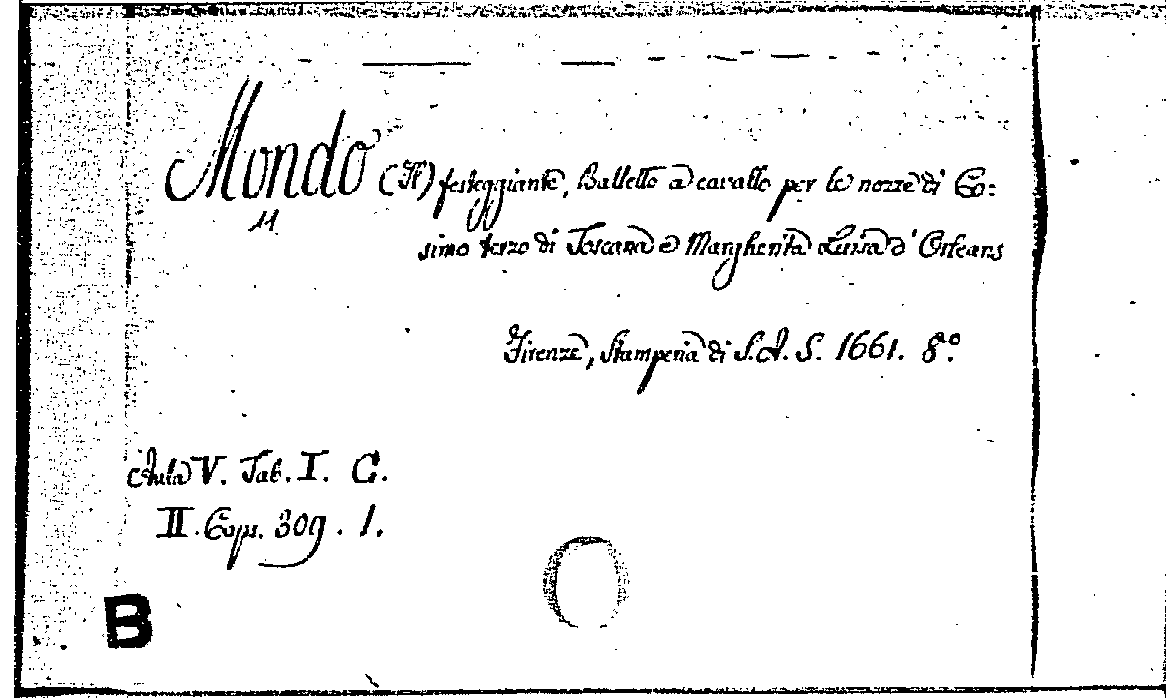 Mondo (Il) festeggiante, Balletto a cavallo per le nozze di Co:
simo terzo di Toscana e Margherita Luisa d' Orleans
Firenze, Stamperia di S. A. S. 1661. 8.º
Aula V. Tab. I. C.
II. Caps. 309. 1.
B